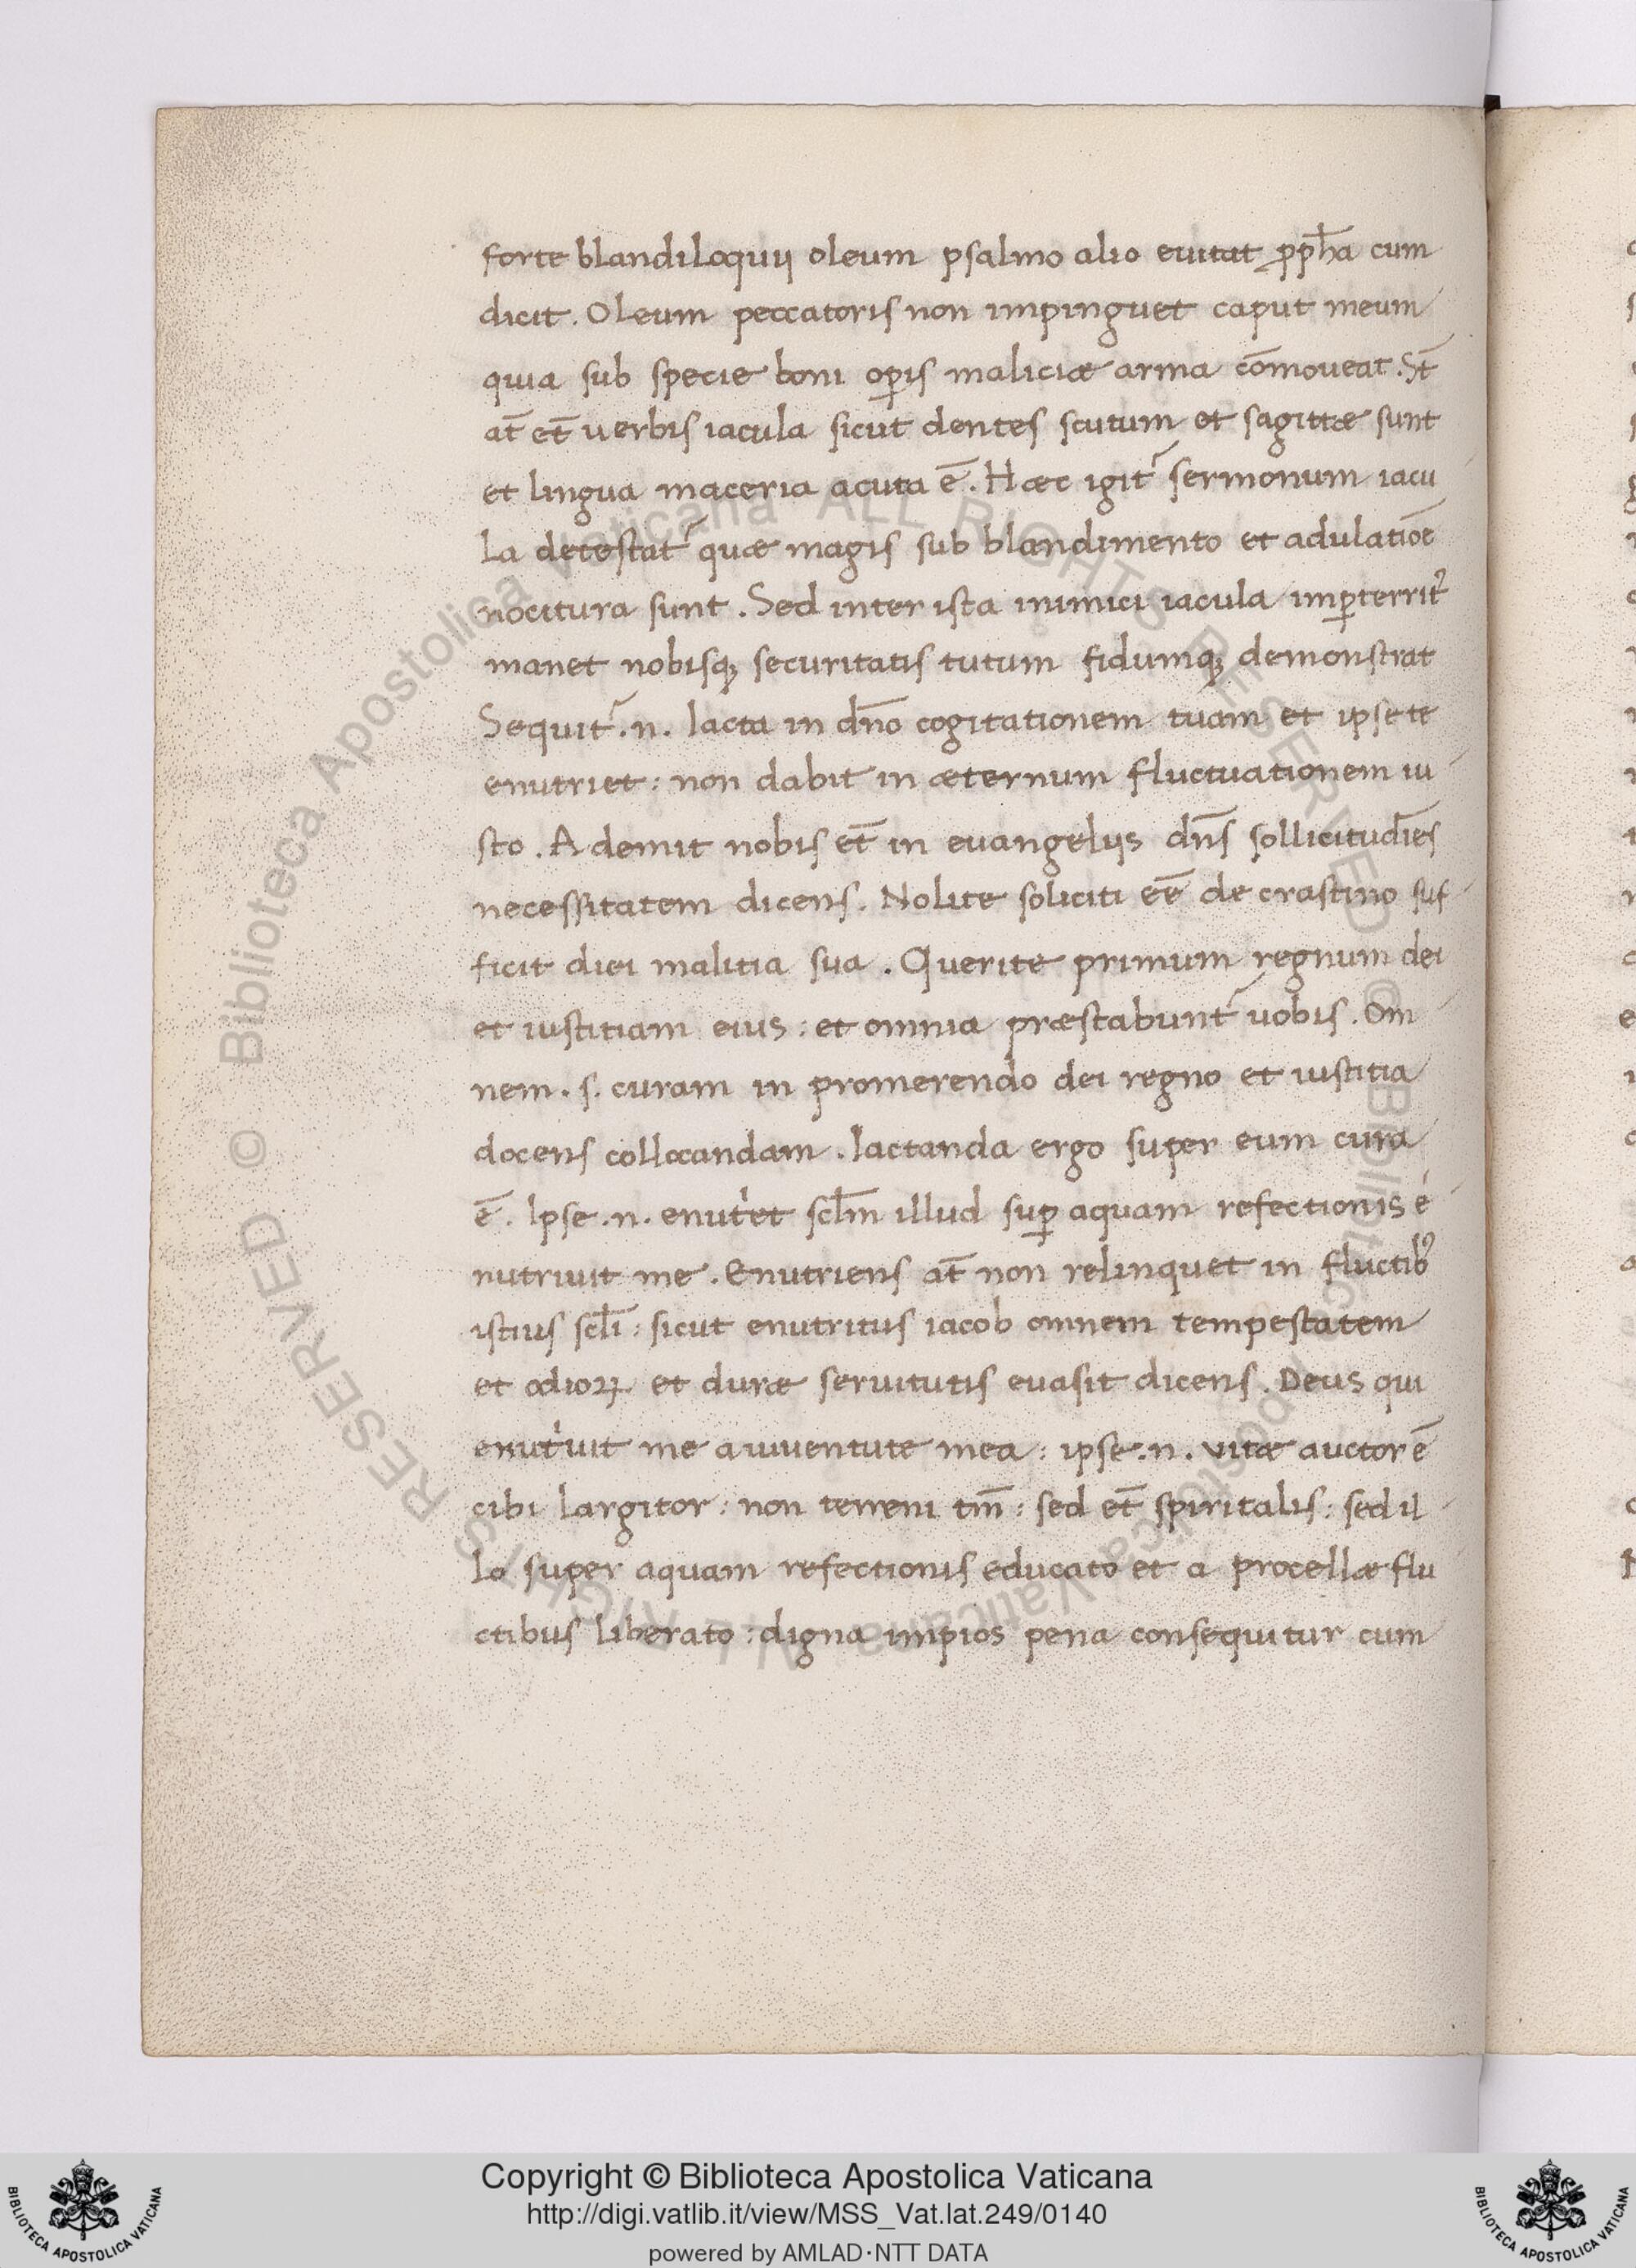 forte blandiloquij oleum psalmo alio euitat ꝓph̄a cum
dicit. Oleum peccatoris non impinguet caput meum
quia sub specie boni oꝑis maliciæ arma cōmoueat. St̄
at̄ et̄ uerbis iacula sicut dentes scutum et sagittæ sunt
et lingua maceria acuta ē. Hæc igit᷑ sermonum iacu
la detestat᷑ quæ magis sub blandimento et adulatiōe
nocitura sunt. Sed inter ista inimici iacula imꝑterrit᷑
manet nobisqꝫ securitatis tutum fidumqꝫ demonstrat
Sequit᷑ .n. Iacta in dn̄o cogitationem tuam et ipse te
enutriet: non dabit in æternum fluctuationem iu
sto. Ademit nobis et̄ in euangelijs dn̄s sollicitudīes
necessitatem dicens. Nolite soliciti eē de crastino suf
ficit diei malitia sua. Querite primum regnum dei
et iustitiam eius: et omnia præstabunt᷑ uobis. Om
nem .s. curam in promerendo dei regno et iustitia
docens collocandam. Iactanda ergo super eum cura
ē. Ipse .n. enutⁱet scl̄m illud suꝑ aquam refectionis e
nutriuit me. Enutriens at̄ non relinquet in fluctibꝰ
istius scl̄i: sicut enutritus iacob omnem tempestatem
et odioꝝ et duræ seruitutis euasit dicens. Deus qui
enutⁱuit me a iuuentute mea: ipse .n. vitæ auctor ē
cibi largitor: non terreni tm̄: sed et̄ spiritalis: sed il
lo super aquam refectionis educato et a procellæ flu
ctibus liberato: digna impios pena consequitur cum
Copyright © Biblioteca Apostolica Vaticana
http://digi.vatlib.it/view/MSS_Vat.lat.249/0140
powered by AMLAD·NTT DATA